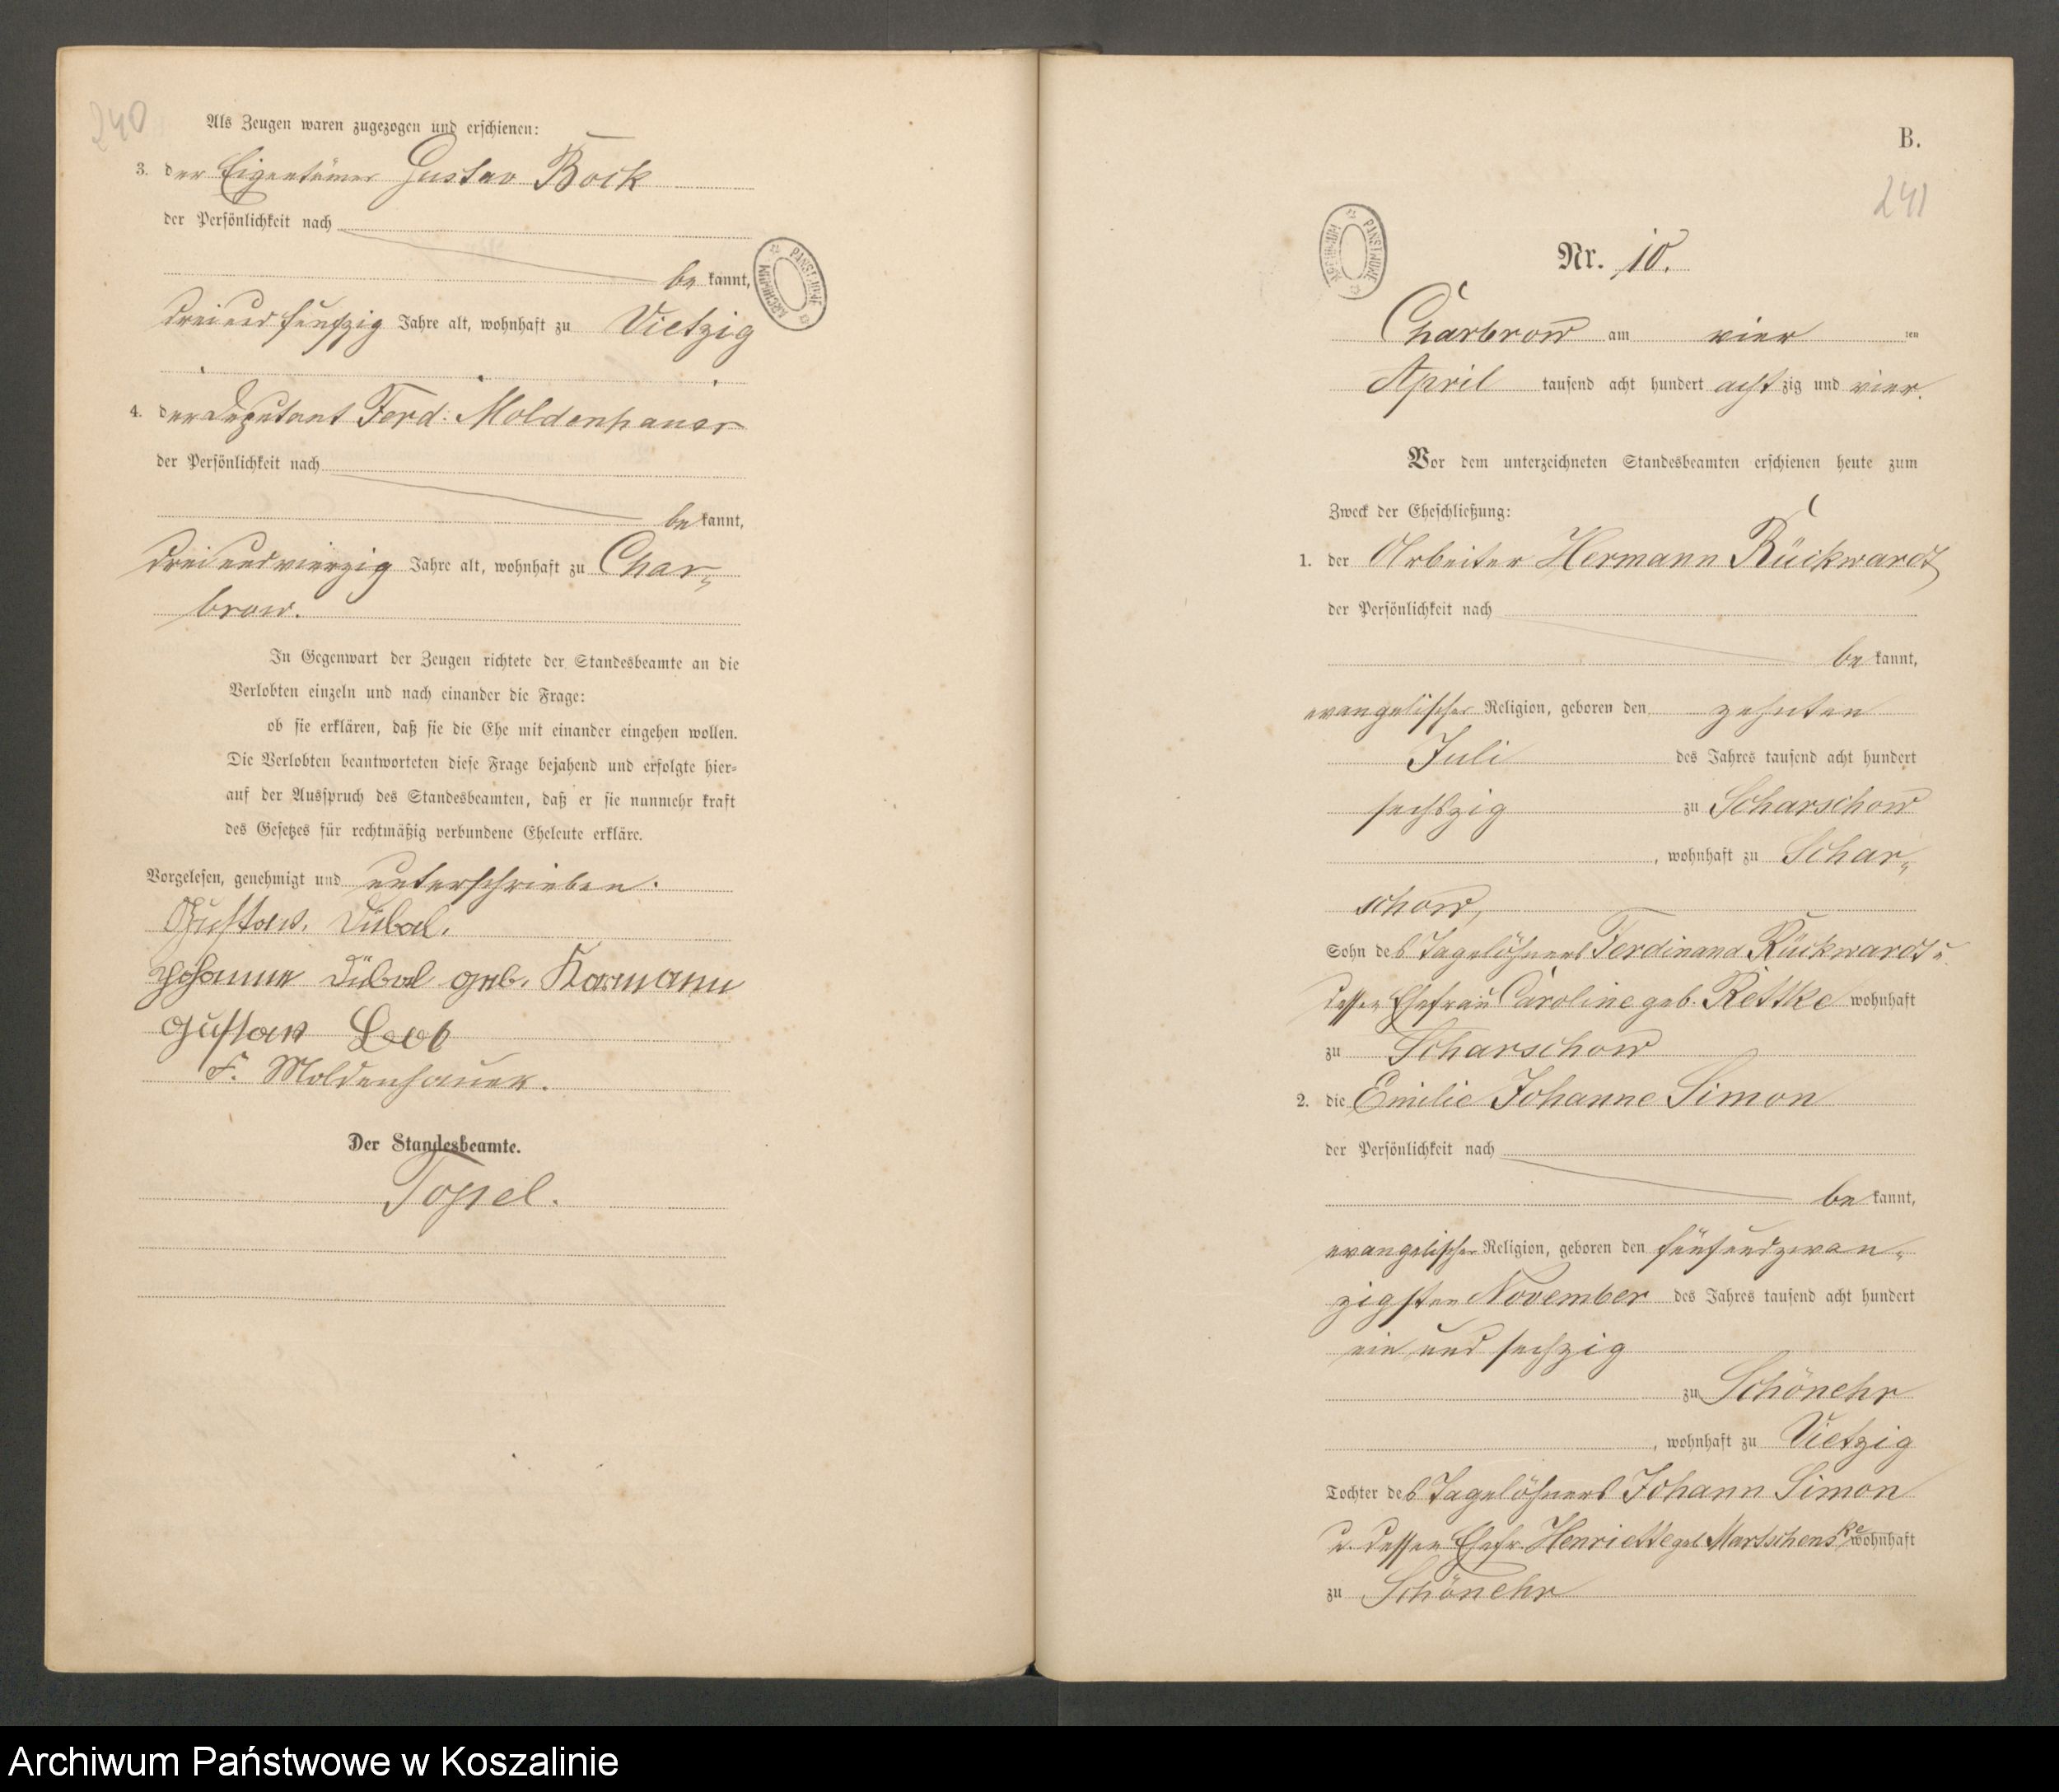 240
Als Zeugen waren zugezogen und erschienen:
3. der Eigentümer Gustav Bock
der Persönlichkeit nach
be kannt,
drei und fünfzig Jahre alt, wohnhaft zu Vietzig
4. der Deputant Ferd: Moldenhauer
der Persönlichkeit nach
be kannt,
dreiundvierzig Jahre alt, wohnhaft zu Char-
brow.
In Gegenwart der Zeugen richtete der Standesbeamte an die
Verlobten einzeln und nach einander die Frage:
ob sie erklären, daß sie die Ehe mit einander eingehen wollen.
Die Verlobten beantworteten diese Frage bejahend und erfolgte hier-
auf der Ausspruch des Standesbeamten, daß er sie nunmehr kraft
des Gesetzes für rechtmäßig verbundene Eheleute erkläre.
Vorgelesen, genehmigt und unterschrieben.
Gustav
Johanne geb.
Gustav
F. Moldenhauer.
Der Standesbeamte.
Topel.
ARCHIWUM PAŃSTWOWE
B.
241
ARCHIWUM PAŃSTWOWE
Nr. 10.
Charbrow am vier ten
April tausend acht hundert acht zig und vier.
Vor dem unterzeichneten Standesbeamten erschienen heute zum
Zweck der Eheschließung:
1. der Arbeiter Hermann Rückwardt
der Persönlichkeit nach
be kannt,
evangelischer Religion, geboren den zehnten
Juli des Jahres tausend acht hundert
sechszig zu Scharschow
, wohnhaft zu Schar-
schow,
Sohn des Tagelöhners Ferdinand Rückwardt u
dessen Ehefrau Caroline geb. Rettke wohnhaft
zu Scharschow
2. die Emilie Johanne Simon
der Persönlichkeit nach
be kannt,
evangelischer Religion, geboren den fünfundzwan-
zigsten November des Jahres tausend acht hundert
ein und sechzig
zu Schönehr
, wohnhaft zu Vietzig
Tochter des Tagelöhners Johann Simon
u. dessen Ehefr. Henriette geb Martschenske wohnhaft
zu Schönehr
Archiwum Państwowe w Koszalinie